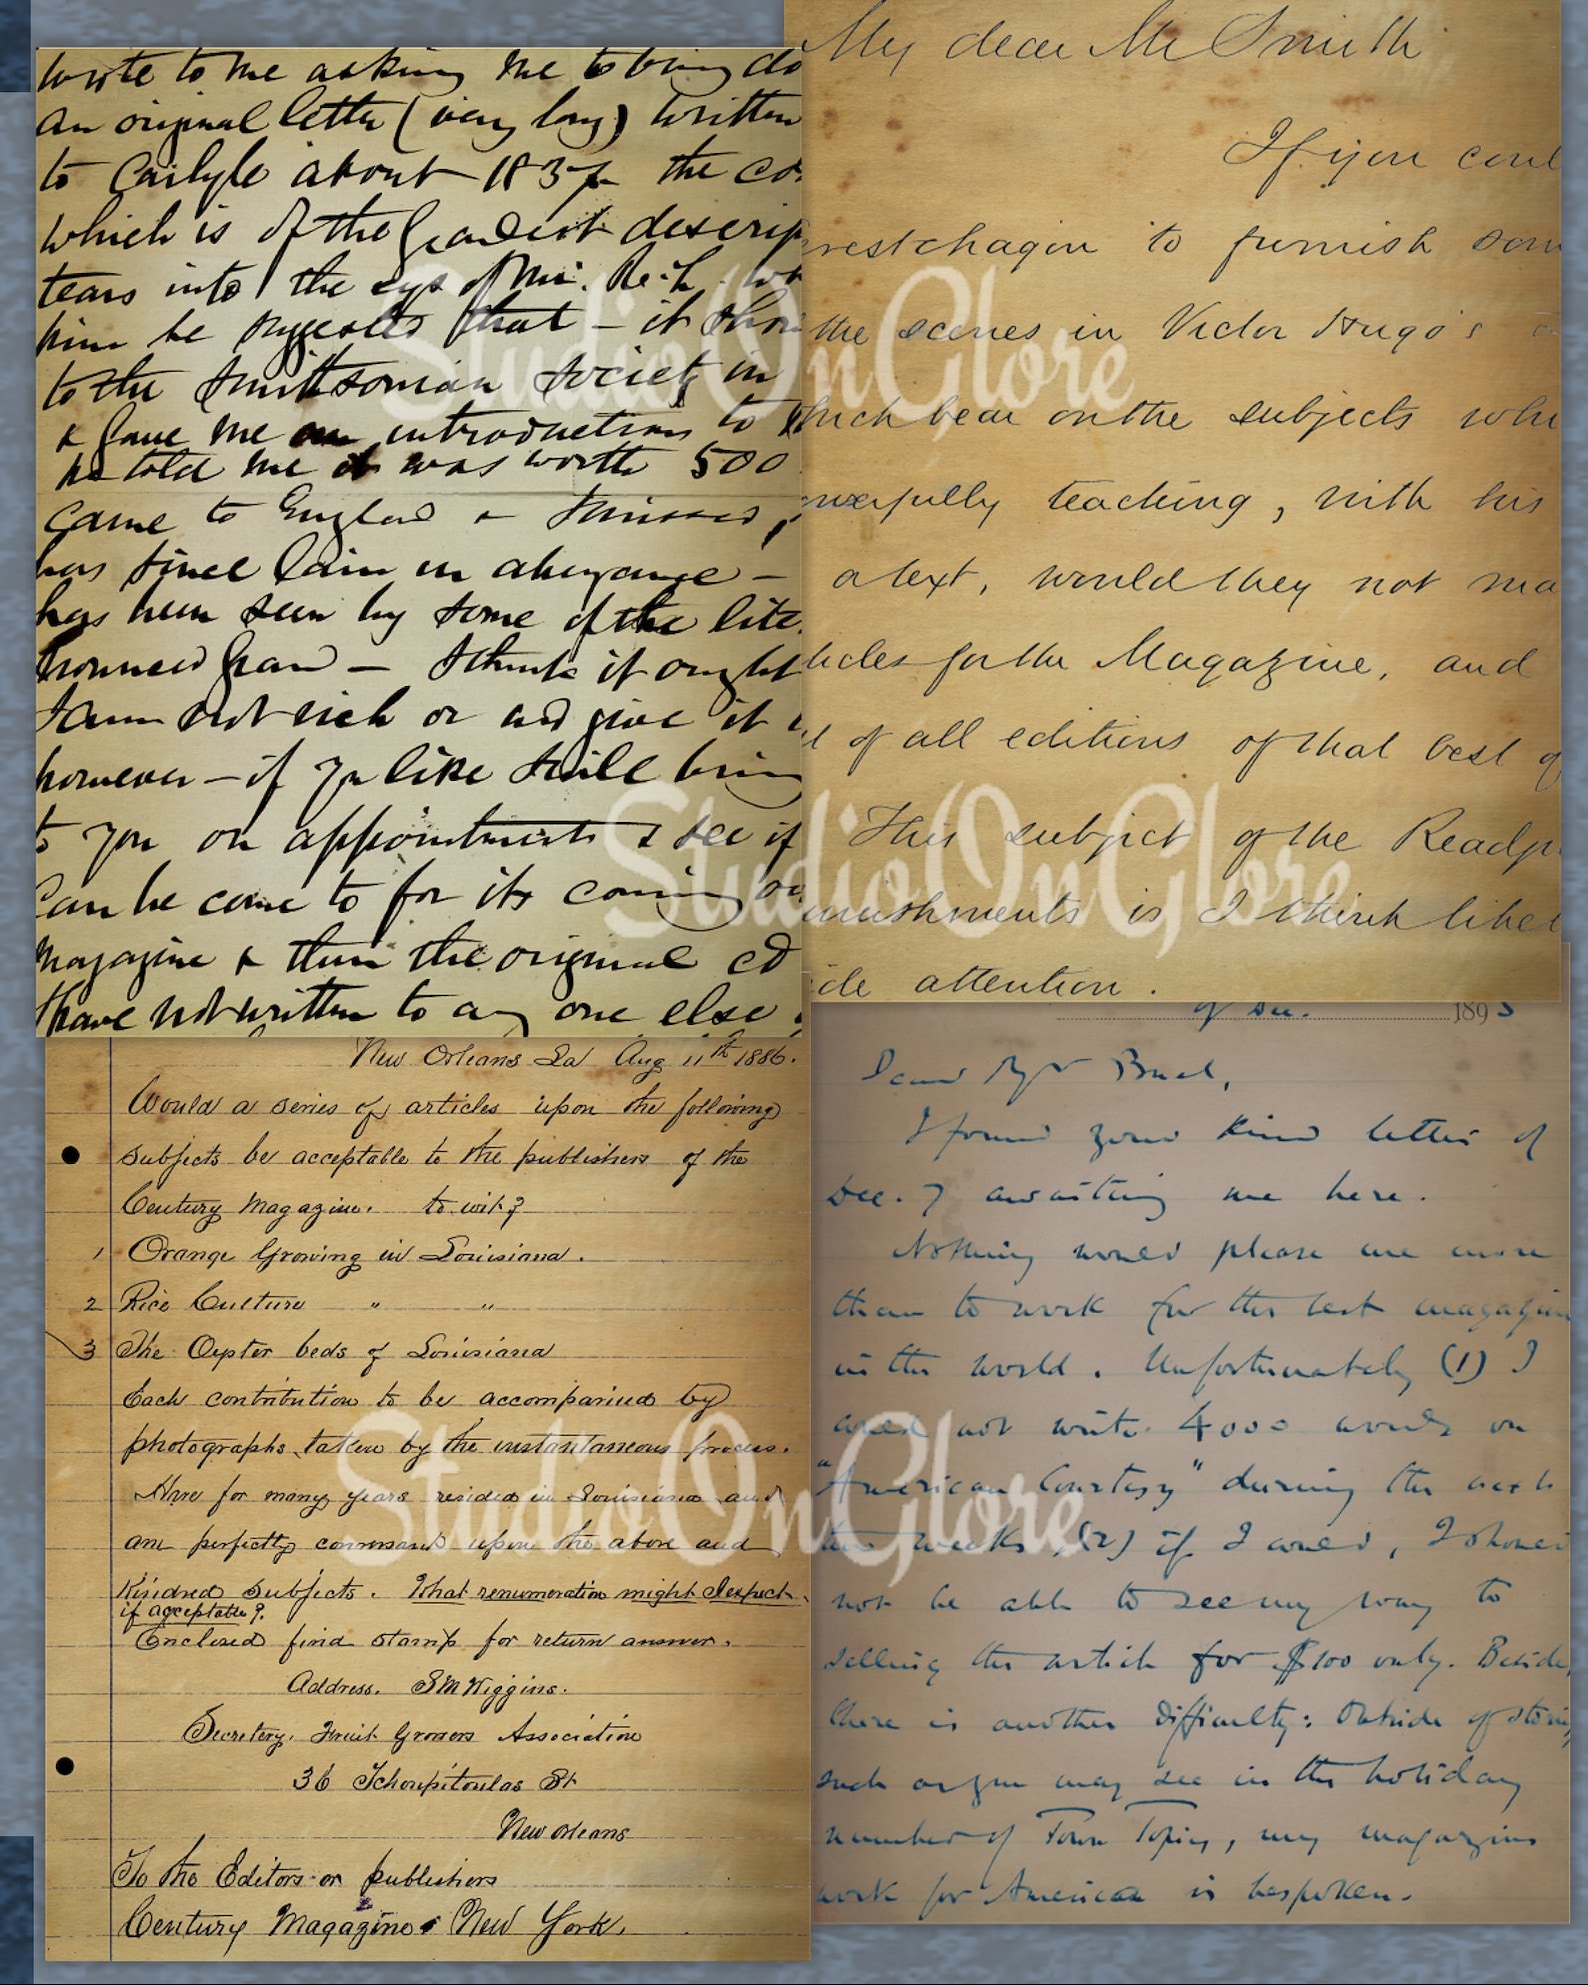 wrote to me asking me to bring do
an original letter (very long) written
to Carlyle about 1837 the co
which is of the descrip
tears into the eyes of Mr.
him he suggested that – it shou
to the Smithsonian Society in
& gave me an introduction to
he told me it was worth 500
came to England &
has since lain in abeyance –
has been seen by some of the lite
I think it ought
I am not rich or and give it
however – if you like I will bring
to you on appointment & see if
can be come to for its coming ou
magazine & then the original cd
I have not written to any one else
My dear Mr Smith
If you coul
restchagin to furnish som
the scenes in Victor Hugo's
which bear on the subjects whi
werfully teaching, with his
a text, would they not ma
ticles for the Magazine, and
t of all editions of that best of
This subject of the Readju
unishments is I think likel
ide attention.
New Orleans La Aug 11th 1886.
Would a series of articles upon the following
subjects be acceptable to the publishers of the
Century Magazine. to wit?
1 Orange Growing in Louisiana.
2 Rice Culture " "
3 The Oyster beds of Louisiana
Each contribution to be accompanied by
photographs taken by the instantaneous process.
Have for many years resided in Louisiana and
am perfectly conversant upon the above and
Kindred Subjects. What renumeration might I expect
if acceptable?
Enclosed find stamp for return answer.
Address. S M Wiggins.
Secretery, Fruit Growers Association
36 Tchoupitoulas St
New Orleans
To the Editors or publishers
Century Magazine New York.
9 Dec. 1893
Dear Mr Buel,
I found your kind letter of
Dec. 7 awaiting me here.
Nothing would please me more
than to work for the best magazine
in the world. Unfortunately (1) I
could not write 4000 words on
"American Courtesy" during the next
two weeks (2) if I could, I should
not be able to see my way to
selling the article for $100 only. Beside,
there is another difficulty: Outside of stories
such as you may see in the holiday
number of Town Topics, my magazine
work for America is bespoken.
StudioOnGlore
StudioOnGlore
StudioOnGlore